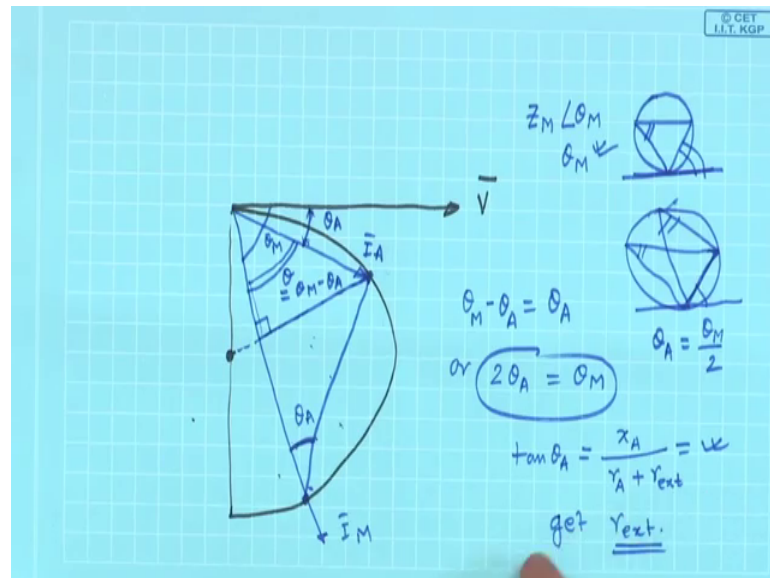 © CET
I.I.T. KGP
Z_M ∠θ_M
θ_M
V̅
θ_A
θ_M
I̅_A
θ
= θ_M-θ_A
θ_M - θ_A = θ_A
θ_A = θ_M/2
or 2θ_A = θ_M
θ_A
tan θ_A = x_A / (r_A + r_ext) =
get r_ext.
I̅_M